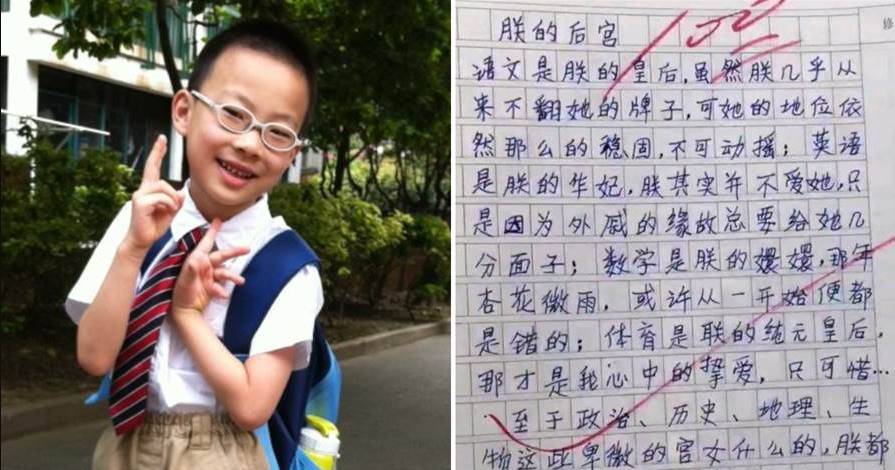 朕的后宫
100
语文是朕的皇后,虽然朕几乎从
来不翻她的牌子,可她的地位依
然那么的稳固,不可动摇;英语
是朕的华妃,朕其实并不爱她,只
是因为外戚的缘故总要给她几
分面子;数学是朕的嬛嬛,那年
杏花微雨,或许从一开始便都
是错的;体育是联的纯元皇后,
那才是我心中的挚爱,只可惜…
…至于政治、历史、地理、生
物这些卑微的官女什么的,朕都